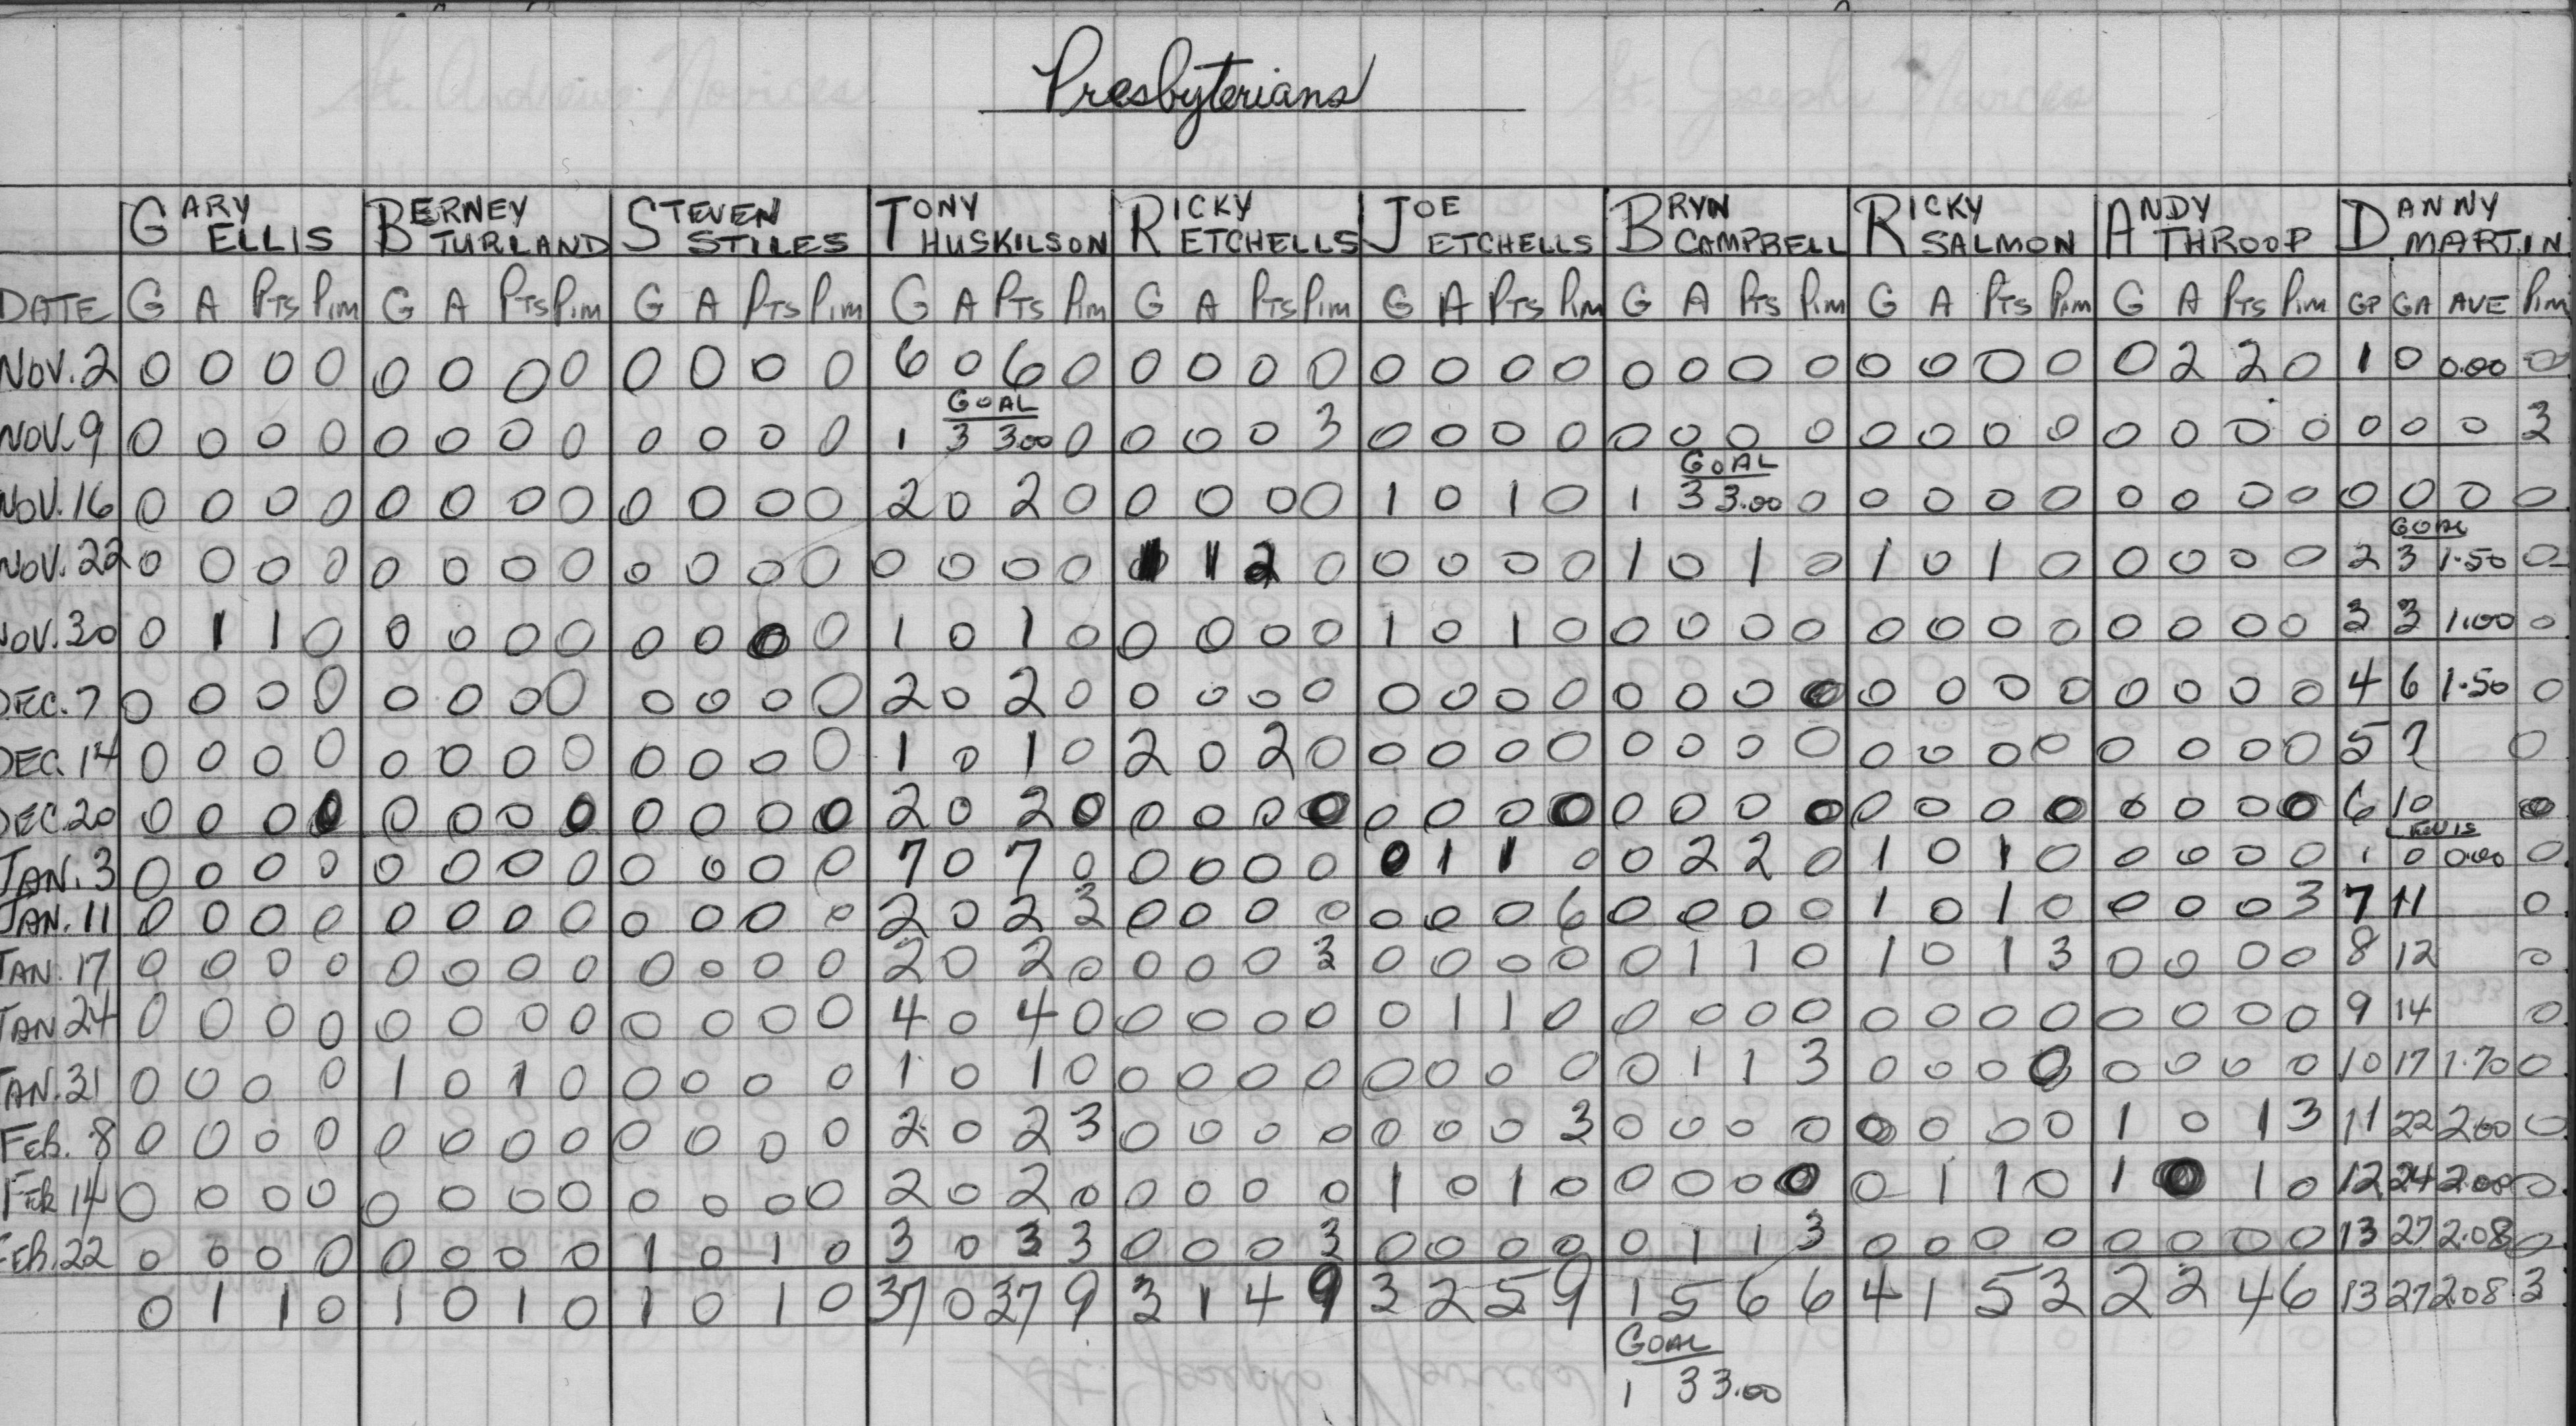 Presbyterians
GARY ELLIS BERNEY TURLAND STEVEN STILES TONY HUSKILSON RICKY ETCHELLS JOE ETCHELLS BRYN CAMPBELL RICKY SALMON ANDY THROOP DANNY MARTIN
DATE G A PTS PIM G A PTS PIM G A PTS PIM G A PTS PIM G A PTS PIM G A PTS PIM G A PTS PIM G A PTS PIM G A PTS PIM GP GA AVE PIM
NOV. 2 0 0 0 0 0 0 0 0 0 0 0 0 6 0 6 0 0 0 0 0 0 0 0 0 0 0 0 0 0 0 0 0 0 2 2 0 1 0 0.00 0
GOAL
NOV. 9 0 0 0 0 0 0 0 0 0 0 0 0 1 3 3.00 0 0 0 0 3 0 0 0 0 0 0 0 0 0 0 0 0 0 0 0 0 0 0 0 3
GOAL
NOV. 16 0 0 0 0 0 0 0 0 0 0 0 0 2 0 2 0 0 0 0 0 1 0 1 0 1 3 3.00 0 0 0 0 0 0 0 0 0 0 0 0 0
GOAL
NOV. 22 0 0 0 0 0 0 0 0 0 0 0 0 0 0 0 0 1 1 2 0 0 0 0 0 1 0 1 0 1 0 1 0 0 0 0 0 2 3 1.50 0
NOV. 30 0 1 1 0 0 0 0 0 0 0 0 0 1 0 1 0 0 0 0 0 1 0 1 0 0 0 0 0 0 0 0 0 0 0 0 0 3 3 1.00 0
DEC. 7 0 0 0 0 0 0 0 0 0 0 0 0 2 0 2 0 0 0 0 0 0 0 0 0 0 0 0 0 0 0 0 0 0 0 0 0 4 6 1.50 0
DEC. 14 0 0 0 0 0 0 0 0 0 0 0 0 1 0 1 0 2 0 2 0 0 0 0 0 0 0 0 0 0 0 0 0 0 0 0 0 5 7 0
DEC 20 0 0 0 0 0 0 0 0 0 0 0 0 2 0 2 0 0 0 0 0 0 0 0 0 0 0 0 0 0 0 0 0 0 0 0 0 6 10 0
JAN. 3 0 0 0 0 0 0 0 0 0 0 0 0 7 0 7 0 0 0 0 0 0 1 1 0 0 2 2 0 1 0 1 0 0 0 0 0 1 0 0.00 0
JAN. 11 0 0 0 0 0 0 0 0 0 0 0 0 2 0 2 3 0 0 0 0 0 0 0 6 0 0 0 0 1 0 1 0 0 0 0 3 7 11 0
JAN. 17 0 0 0 0 0 0 0 0 0 0 0 0 2 0 2 0 0 0 0 3 0 0 0 0 0 1 1 0 1 0 1 3 0 0 0 0 8 12 0
JAN 24 0 0 0 0 0 0 0 0 0 0 0 0 4 0 4 0 0 0 0 0 0 1 1 0 0 0 0 0 0 0 0 0 0 0 0 0 9 14 0
JAN. 31 0 0 0 0 1 0 1 0 0 0 0 0 1 0 1 0 0 0 0 0 0 0 0 0 0 1 1 3 0 0 0 0 0 0 0 0 10 17 1.70 0
FEB. 8 0 0 0 0 0 0 0 0 0 0 0 0 2 0 2 3 0 0 0 0 0 0 0 3 0 0 0 0 0 0 0 0 1 0 1 3 11 22 2.00 0
FEB 14 0 0 0 0 0 0 0 0 0 0 0 0 2 0 2 0 0 0 0 0 1 0 1 0 0 0 0 0 0 1 1 0 1 0 1 0 12 24 2.00 0
FEB. 22 0 0 0 0 0 0 0 0 1 0 1 0 3 0 3 3 0 0 0 3 0 0 0 0 0 1 1 3 0 0 0 0 0 0 0 0 13 27 2.08 0
0 1 1 0 1 0 1 0 1 0 1 0 37 0 37 9 3 1 4 9 3 2 5 9 1 5 6 6 4 1 5 3 2 2 4 6 13 27 2.08 3
GOAL
1 3 3.00